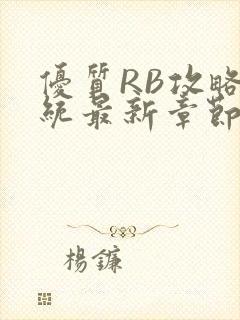 優質RB攻略
統最新章節
楊鐮